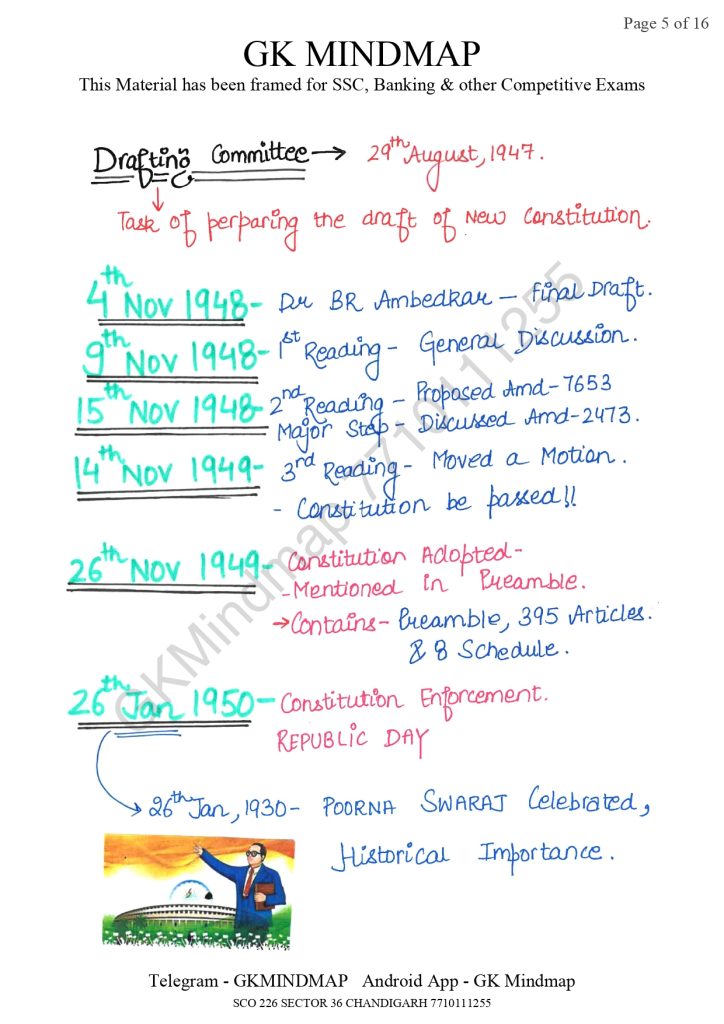 Page 5 of 16
GK MINDMAP
This Material has been framed for SSC, Banking & other Competitive Exams
Drafting Committee → 29th August, 1947.
Task of perparing the draft of New Constitution.
4th Nov 1948- Dr BR Ambedkar – Final Draft.
9th Nov 1948- 1st Reading – General Discussion.
15th Nov 1948- 2nd Reading – Proposed Amd-7653
Major Step – Discussed Amd-2473.
14th Nov 1949- 3rd Reading – Moved a Motion.
- Constitution be passed!!
26th Nov 1949- Constitution Adopted-
- Mentioned in Preamble.
→ Contains- Preamble, 395 Articles.
& 8 Schedule.
26th Jan 1950- Constitution Enforcement.
REPUBLIC DAY
26th Jan, 1930- POORNA SWARAJ Celebrated,
Historical Importance.
GKMindmap 7710111255
Telegram - GKMINDMAP Android App - GK Mindmap
SCO 226 SECTOR 36 CHANDIGARH 7710111255